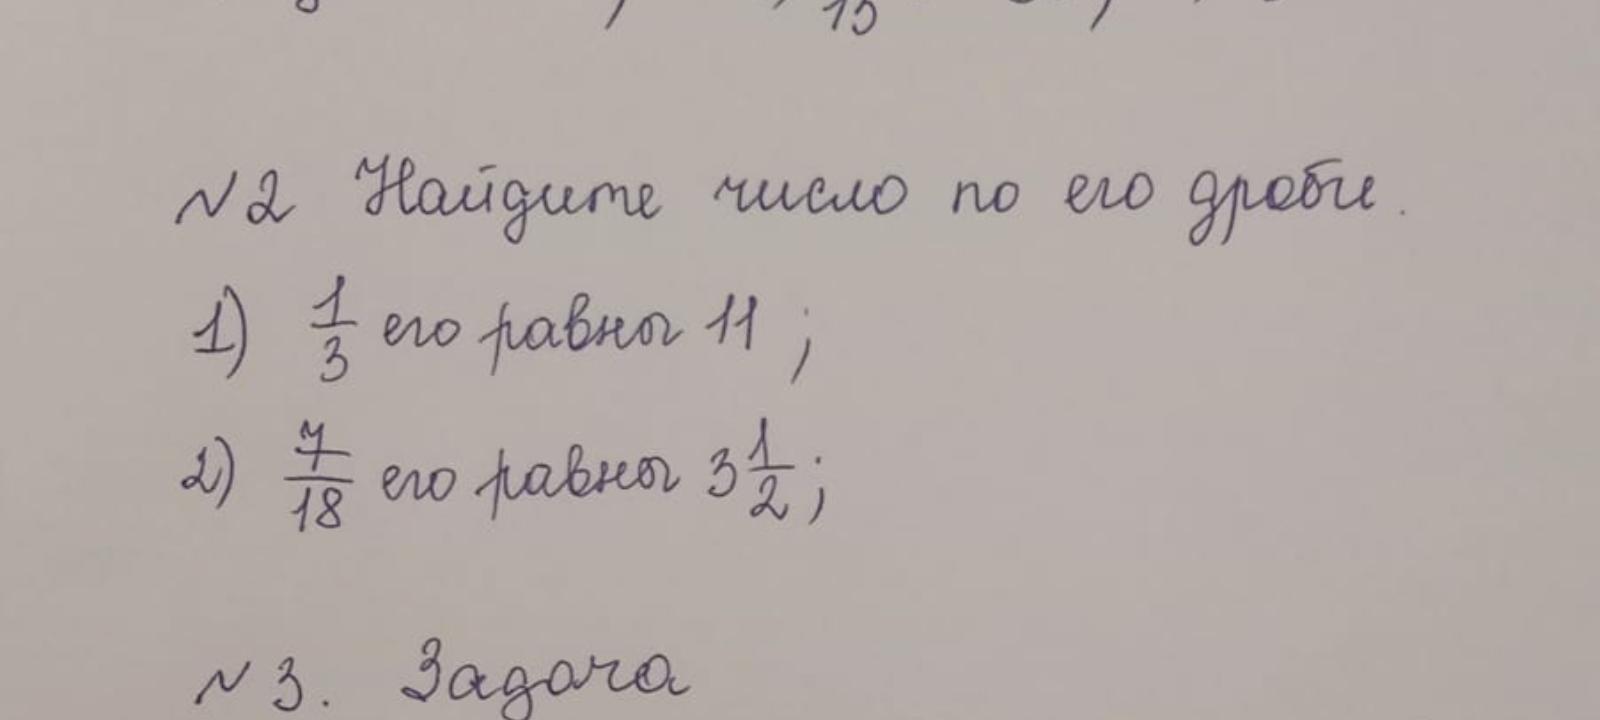 15
№2 Найдите число по его дроби.
1) 1/3 его равны 11 ;
2) 7/18 его равны 3 1/2 ;
№3. Задача